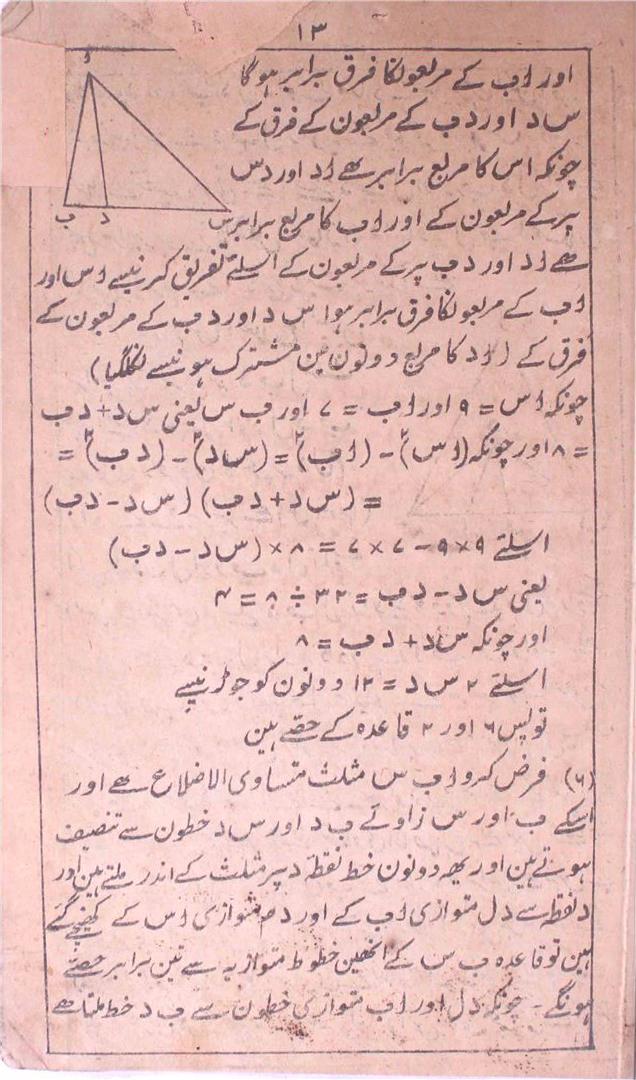 ۱۳
ا
اور ا ب کے مربعونکا فرق برابر ہوگا
س د اور د ب کے مربعون کے فرق کے
چونکہ ا س کا مربع برابر ہے ا د اور د س
ب د س
پر کے مربعون کے اور ا ب کا مربع برابر
ہے ا د اور د ب پر کے مربعون کے اسلئے تفریق کرنیسے ا س اور
ا ب کے مربعونکا فرق برابر ہوا س د اور د ب کے مربعون کے
فرق کے ( ا د کا مربع دونون مین مشترک ہونیسے نکلگیا)
چونکہ ا س = ۹ اور ا ب = ۷ اور ب س یعنی س د + د ب
= ۸ اور چونکہ (ا س)۲ − (ا ب)۲ = (س د)۲ − (د ب)۲ =
= (س د + د ب) (س د − د ب)
اسلئے ۹ × ۹ − ۷ × ۷ = ۸ × (س د − د ب)
یعنی س د − د ب = ۳۲ ÷ ۸ = ۴
اور چونکہ س د + د ب = ۸
اسلئے ۲ س د = ۱۲ دونون کو جوڑنیسے
تو پس ۶ اور ۲ قاعدہ کے حصے ہین
(۶) فرض کرو ا ب س مثلث متساوی الاضلاع ہے اور
اسکے ب اور س زاوئے ب د اور س د خطون سے تنصیف
ہوتے ہین اور یھہ دونون خط نقطہ د پر مثلث کے اندر ملتے ہین اور
د نقطہ سے د ل متوازی ا ب کے اور د م متوازی ا س کے کھینچے گئے
ہین تو قاعدہ ب س کے انھین خطوط متوازیہ سے تین برابر حصے
ہونگے ۔ چونکہ د ل اور ا ب متوازی خطون سے ب د خط ملتا ہے